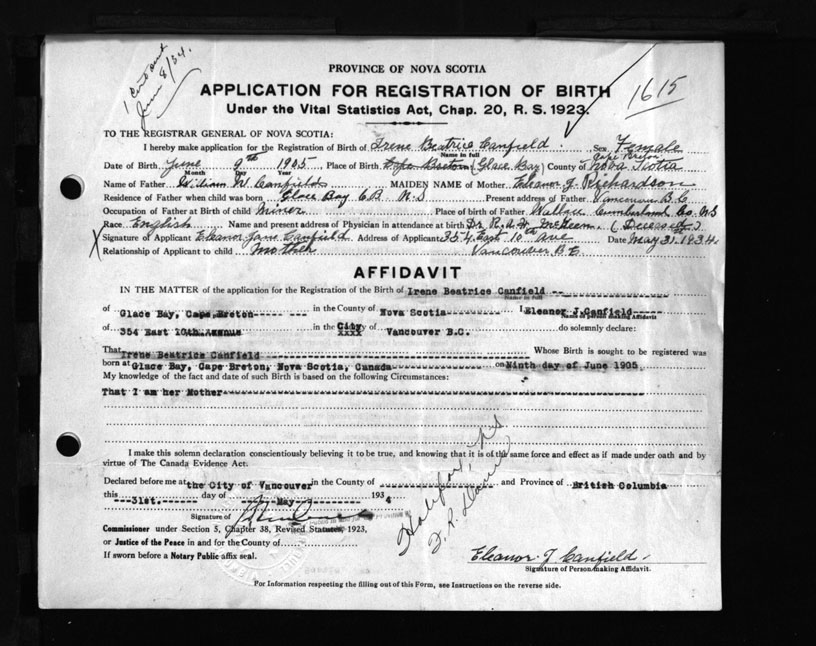 1 Cert sent
June 8/34.
1615
PROVINCE OF NOVA SCOTIA
APPLICATION FOR REGISTRATION OF BIRTH
Under the Vital Statistics Act, Chap. 20, R. S. 1923.
TO THE REGISTRAR GENERAL OF NOVA SCOTIA:
I hereby make application for the Registration of Birth of Irene Beatrice Canfield. Sex Female
Name in full
Cape Breton
Date of Birth June 9th 1905 Place of Birth Cape Breton (Glace Bay) County of Nova Scotia
Month Day Year
Name of Father William W Canfield MAIDEN NAME of Mother Eleanor J. Richardson
Residence of Father when child was born Glace Bay C B N.S Present address of Father Vancouver B.C
Occupation of Father at Birth of child miner Place of birth of Father Wallace Cumberland Co. N.S
Race English Name and present address of Physician in attendance at birth Dr. R. A. H. McKeen. (Deceased)
X Signature of Applicant Eleanor Jane Canfield Address of Applicant 354 East 10th Ave Date May 31. 1934.
Relationship of Applicant to child mother Vancouver B.C
AFFIDAVIT
IN THE MATTER of the application for the Registration of the Birth of Irene Beatrice Canfield --
Name in full
of Glace Bay, Cape Breton in the County of Nova Scotia I Eleanor J.Canfield
Name of Person making Affidavit
of 354 East 10th Avenue in the City xxxx of Vancouver B.C. do solemnly declare:
That Irene Beatrice Canfield Whose Birth is sought to be registered was
born at Glace Bay, Cape Breton, Nova Scotia, Canada on Ninth day of June 1905.
My knowledge of the fact and date of such Birth is based on the following Circumstances:
That I am her Mother
I make this solemn declaration conscientiously believing it to be true, and knowing that it is of the same force and effect as if made under oath and by
virtue of The Canada Evidence Act.
Declared before me at the City of Vancouver in the County of and Province of British Columbia
this 31st. day of May 1934
Signature of
Commissioner under Section 5, Chapter 38, Revised Statutes, 1923,
or Justice of the Peace in and for the County of
If sworn before a Notary Public affix seal.
Halifax, N.S
Eleanor J Canfield.
Signature of Person making Affidavit.
For Information respecting the filling out of this Form, see Instructions on the reverse side.